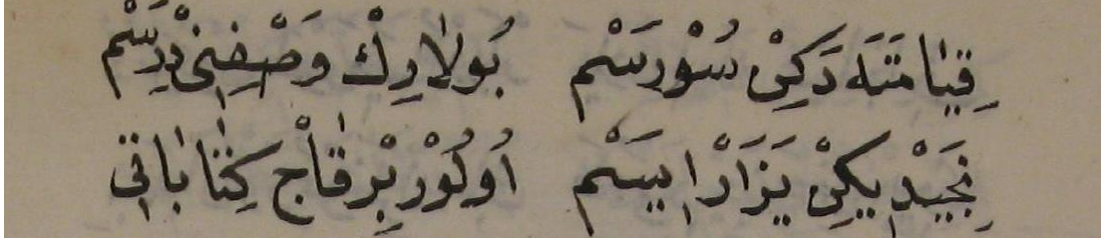 قِيٰامَتَه دَكِنْ سُوْرسَمْ بُولاَرِكْ وَصْفِنِىْ دِرسَمْ
نِجَيْدِيكِنْ يَزَارْ اِيسَمْ اُولُوْر بِرْ قٰاجْ كِتٰابٰاتِى